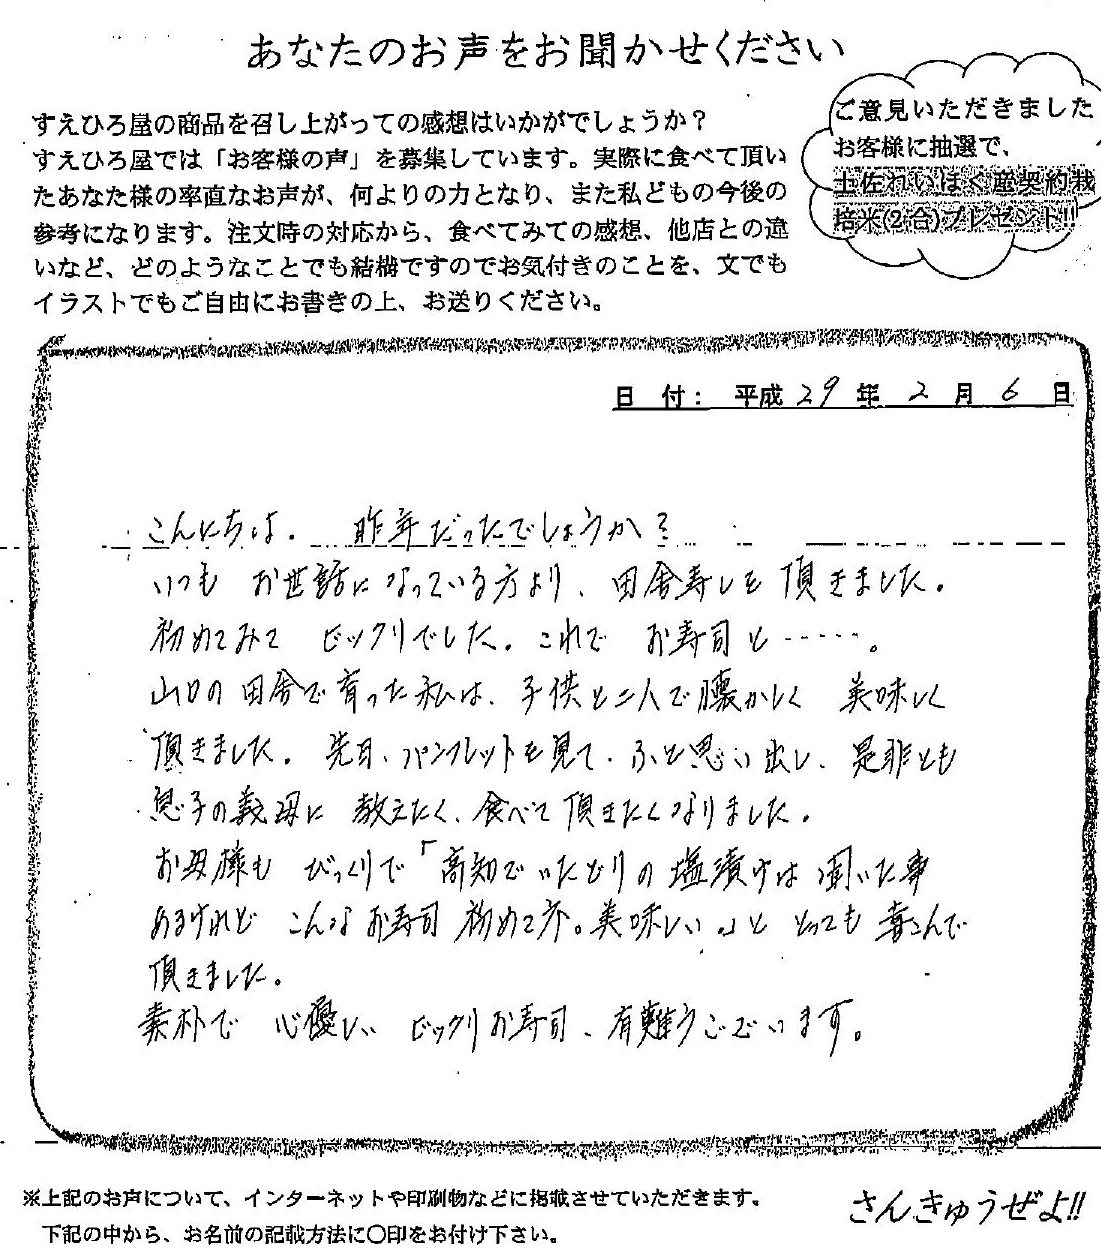 あなたのお声をお聞かせください
ご意見いただきました
お客様に抽選で、
土佐れいほく産契約栽
培米(2合)プレゼント!!
すえひろ屋の商品を召し上がっての感想はいかがでしょうか？
すえひろ屋では「お客様の声」を募集しています。実際に食べて頂い
たあなた様の率直なお声が、何よりの力となり、また私どもの今後の
参考になります。注文時の対応から、食べてみての感想、他店との違
いなど、どのようなことでも結構ですのでお気付きのことを、文でも
イラストでもご自由にお書きの上、お送りください。
日 付： 平成 29 年 2 月 6 日
こんにちは。 昨年だったでしょうか？
いつも お世話になっている方より、田舎寿しを頂きました。
初めてみて ビックリでした。これで お寿司と……。
山口の田舎で育った私は、子供と二人で懐かしく 美味しく
頂きました。先日、パンフレットを見て、ふと思い出し、是非とも
息子の義母に 教えたく、食べて頂きたくなりました。
お母様も びっくりで「高知でいたどりの塩漬けは聞いた事
あるけれど こんなお寿司 初めてだ。美味しい。」と とっても喜こんで
頂きました。
素朴で 心優しい ビックリお寿司、有難うございます。
※上記のお声について、インターネットや印刷物などに掲載させていただきます。
下記の中から、お名前の記載方法に〇印をお付け下さい。
さんきゅうぜよ!!